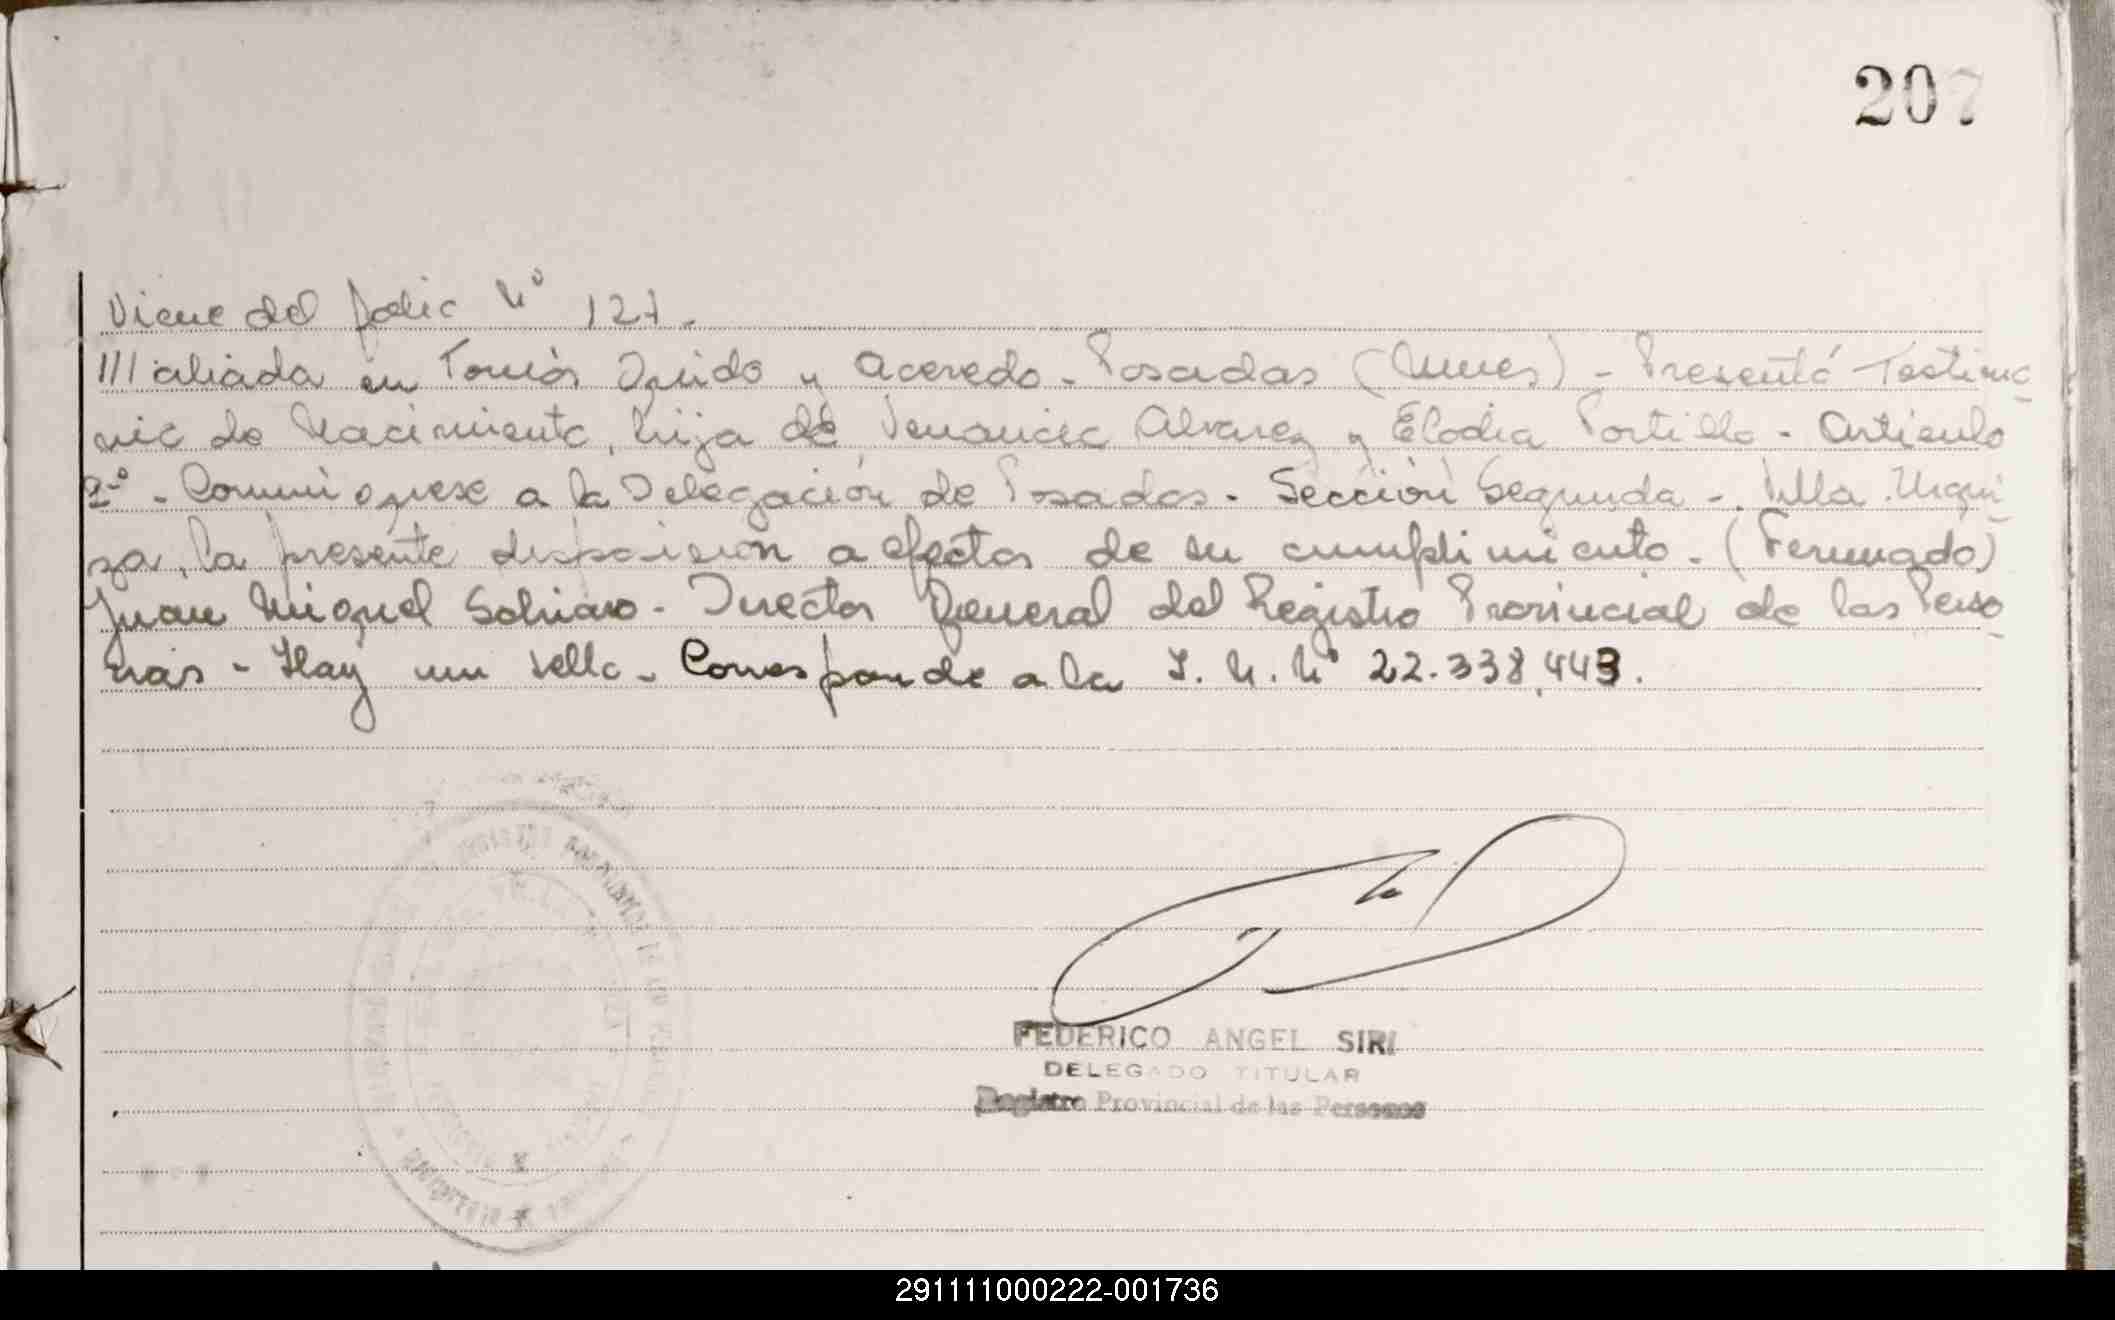 207
Viene del folio Nº 127.
///ciliada en Tomás Guido y Acevedo - Posadas (Mnes) - Presentó Testimo
nio de Nacimiento, hija de Venancio Alvarez y Elodia Portillo - Artículo
2º - Comuníquese a la Delegación de Posadas - Sección Segunda - Villa Urqui
za, la presente disposición a efectos de su cumplimiento. (Fermado)
Juan Miguel - Director General del Registro Provincial de las Perso
nas - Hay un sello - Corresponde a la I. N. Nº 22.338.443.
FEDERICO ANGEL SIRI
DELEGADO TITULAR
Registro Provincial de las Personas
291111000222-001736